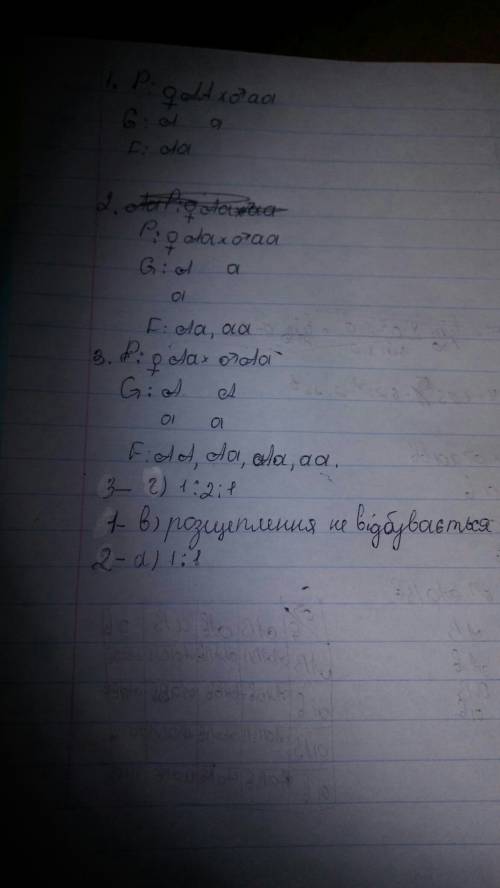 1. P: ♀ AA × ♂ aa
G: A a
F: Aa
2.
P: ♀ Aa × ♂ aa
G: A a
a
F: Aa, aa
3. P: ♀ Aa × ♂ Aa
G: A A
a a
F: AA, Aa, Aa, aa.
3 – г) 1:2:1
1 – в) розщеплення не відбувається
2 – а) 1:1